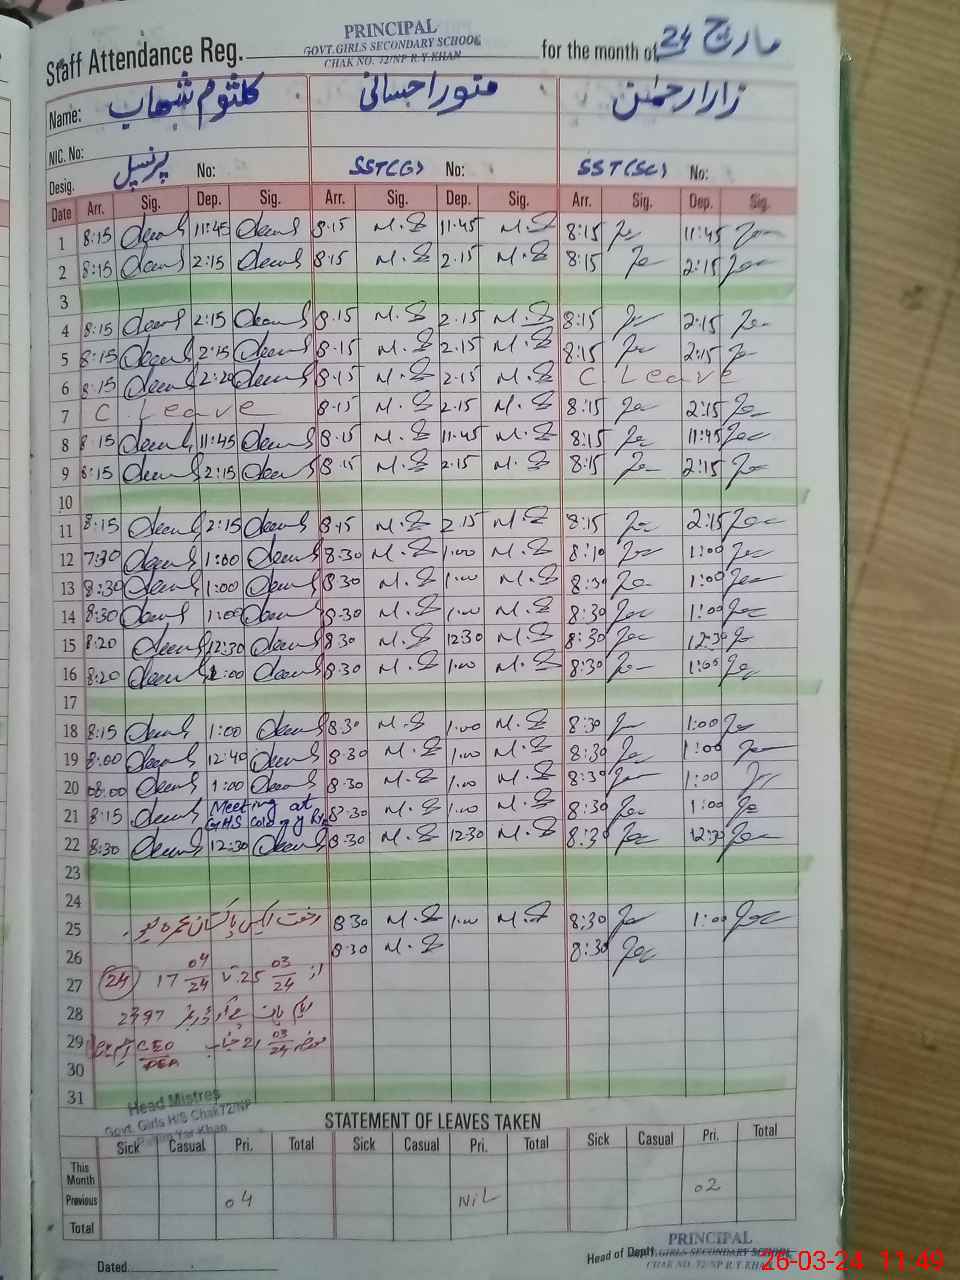 PRINCIPAL
GOVT. GIRLS SECONDARY SCHOOL
CHAK NO. 72/NP R.Y.KHAN
Staff Attendance Reg. for the month of مارچ 24
Name: کلثوم شہاب منور احسانی زارا رحمٰن
NIC. No:
Desig. پرنسپل No: SST(G) No: SST(SC) No:
Date Arr. Sig. Dep. Sig. Arr. Sig. Dep. Sig. Arr. Sig. Dep. Sig.
1 8:15 11:45 8.15 M.S 11.45 M.S 8:15 11:45
2 8:15 2:15 8.15 M.S 2.15 M.S 8:15 2:15
3
4 8:15 2:15 8.15 M.S 2.15 M.S 8:15 2:15
5 8:15 2:15 8.15 M.S 2.15 M.S 8:15 2:15
6 8:15 2:20 8.15 M.S 2.15 M.S C Leave
7 C Leave 8.15 M.S 2.15 M.S 8:15 2:15
8 8:15 11:45 8.15 M.S 11.45 M.S 8:15 11:45
9 8:15 2:15 8.15 M.S 2.15 M.S 8:15 2:15
10
11 8:15 2:15 8.15 M.S 2.15 M.S 8:15 2:15
12 7:30 1:00 8.30 M.S 1.00 M.S 8:10 1:00
13 8:30 1:00 8.30 M.S 1.00 M.S 8:30 1:00
14 8:30 1:00 8.30 M.S 1.00 M.S 8:30 1:00
15 8:20 12:30 8.30 M.S 12.30 M.S 8:30 12:30
16 8:20 1:00 8.30 M.S 1.00 M.S 8:30 1:00
17
18 8:15 1:00 8.30 M.S 1.00 M.S 8:30 1:00
19 8:00 12:40 8.30 M.S 1.00 M.S 8:30 1:00
20 08:00 1:00 8.30 M.S 1.00 M.S 8:30 1:00
21 8:15 Meeting at GHS colony 8.30 M.S 1.00 M.S 8:30 1:00
22 8:30 12:30 8.30 M.S 12.30 M.S 8:30 12:30
23
24
25 رخصت ایکس پاکستان عمرہ 8.30 M.S 1.00 M.S 8:30 1:00
26 8.30 M.S 8:30
27 از 25 03/24 تا 17 04/24 (24)
28 2397
29 21 03/24 CEO DEA
30
31
Head Mistres
Govt. Girls H/S Chak 72/NP
Rahim Yar Khan
STATEMENT OF LEAVES TAKEN
Sick Casual Pri. Total Sick Casual Pri. Total Sick Casual Pri. Total
This Month
Previous 04 NiL 02
Total
Dated
Head of Deptt.
PRINCIPAL
GOVT. GIRLS SECONDARY SCHOOL
CHAK NO. 72/NP R.Y.KHAN
26-03-24 11:49